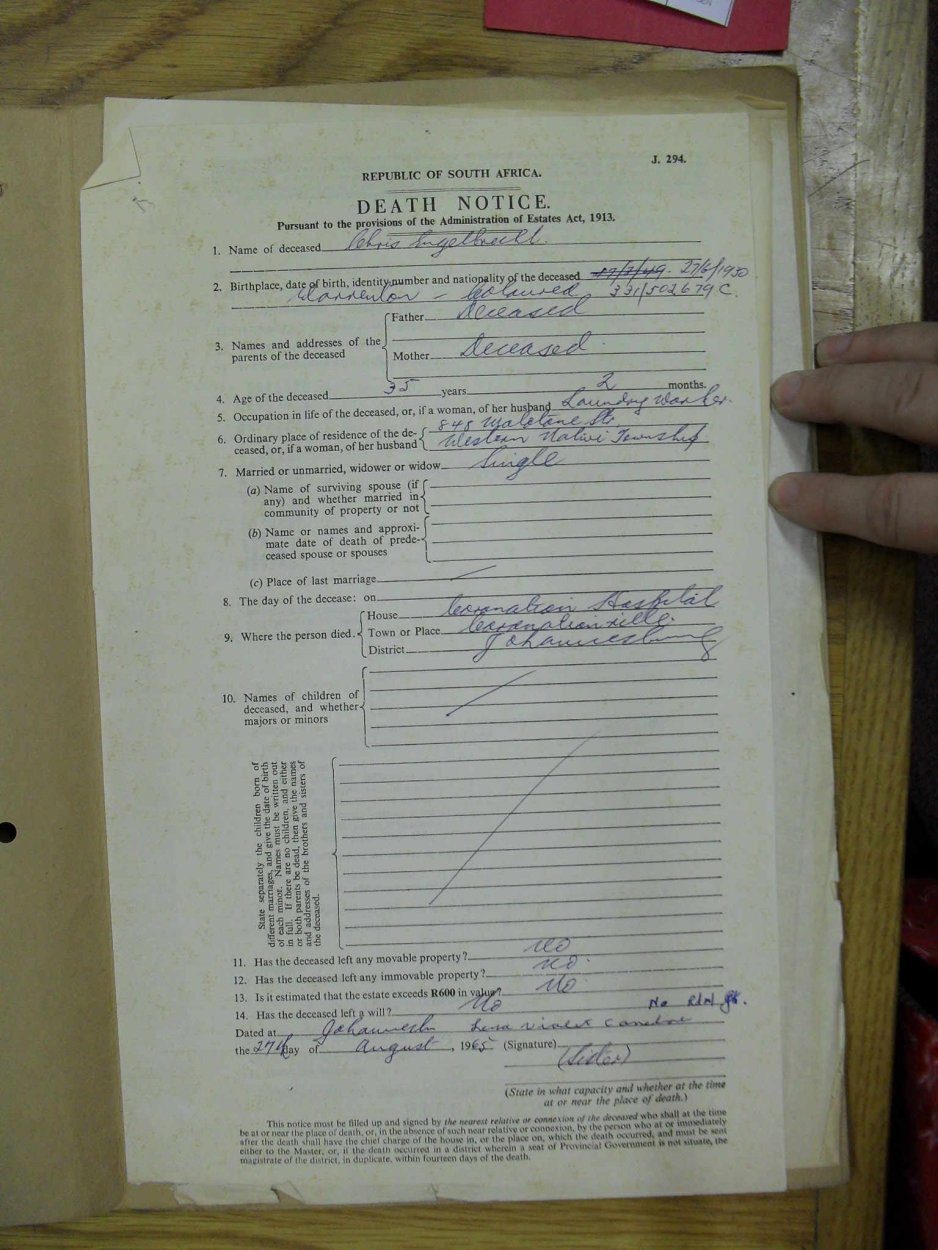 J. 294.
REPUBLIC OF SOUTH AFRICA.
DEATH NOTICE.
Pursuant to the provisions of the Administration of Estates Act, 1913.
1. Name of deceased Chris Engelbrecht.
2. Birthplace, date of birth, identity number and nationality of the deceased 27/6/1930
Warrenton – Coloured 331/502679 C.
3. Names and addresses of the parents of the deceased
Father Deceased
Mother Deceased.
4. Age of the deceased 35 years 2 months.
5. Occupation in life of the deceased, or, if a woman, of her husband Laundry Worker.
6. Ordinary place of residence of the de-
ceased, or, if a woman, of her husband
848 Str.
Western Native Township
7. Married or unmarried, widower or widow Single
(a) Name of surviving spouse (if
any) and whether married in
community of property or not
(b) Name or names and approxi-
mate date of death of prede-
ceased spouse or spouses
(c) Place of last marriage
8. The day of the decease: on
9. Where the person died.
House Coronation Hospital
Town or Place Coronationville.
District Johannesburg
10. Names of children of
deceased, and whether
majors or minors
State separately the children born of
different marriages, and give the date of birth
of each minor. Names must be written out
in full. If there are no children, and either
or both parents be dead, then give the names
and addresses of the brothers and sisters of
the deceased.
11. Has the deceased left any movable property? No
12. Has the deceased left any immovable property? No.
13. Is it estimated that the estate exceeds R600 in value? No
14. Has the deceased left a will? No
No
Dated at Johannesb Violet
the 27th day of August, 1965 (Signature)
(Sister)
(State in what capacity and whether at the time
at or near the place of death.)
This notice must be filled up and signed by the nearest relative or connexion of the deceased who shall at the time
be at or near the place of death, or, in the absence of such near relative or connexion, by the person who at or immediately
after the death shall have the chief charge of the house in, or the place on, which the death occurred, and must be sent
either to the Master, or, if the death occurred in a district wherein a seat of Provincial Government is not situate, the
magistrate of the district, in duplicate, within fourteen days of the death.